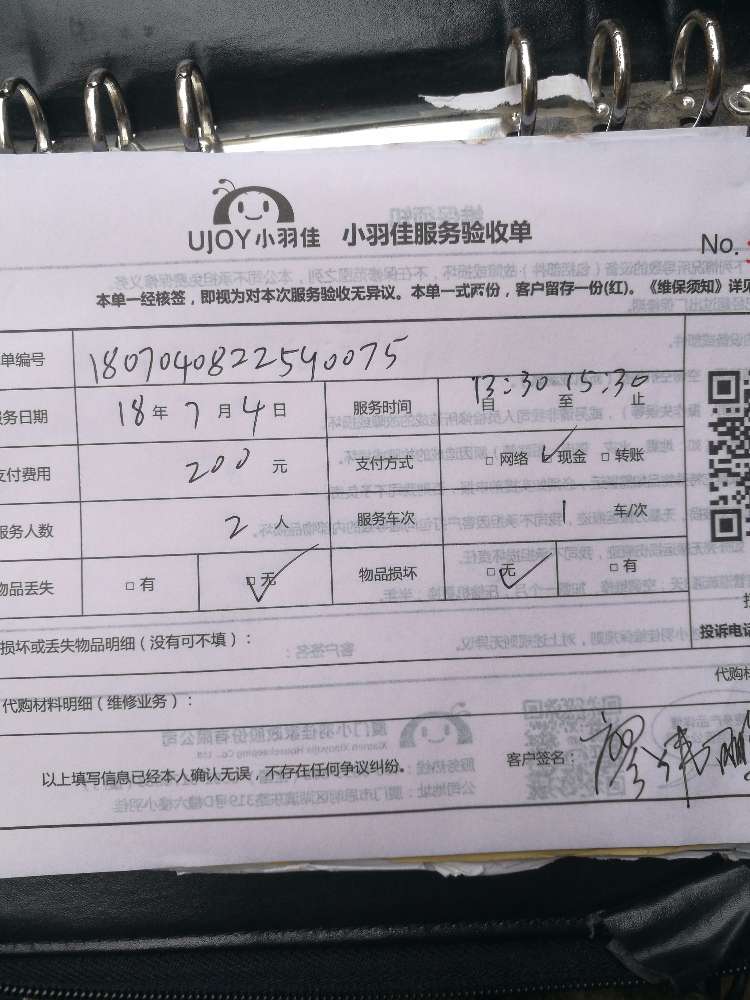 UJOY小羽佳 小羽佳服务验收单
No.
本单一经核签，即视为对本次服务验收无异议。本单一式两份，客户留存一份(红)。《维保须知》详见
单编号 1807040822540075
服务日期 18年7月4日 服务时间 13:30 15:30
自 至 止
支付费用 200 元 支付方式 □ 网络 □ 现金 □ 转账
服务人数 2 人 服务车次 1 车/次
物品丢失 □ 有 □ 无 物品损坏 □ 无 □ 有
损坏或丢失物品明细（没有可不填）：
投诉电话
代购材料明细（维修业务）：
代购材
以上填写信息已经本人确认无误，不存在任何争议纠纷。
客户签名：